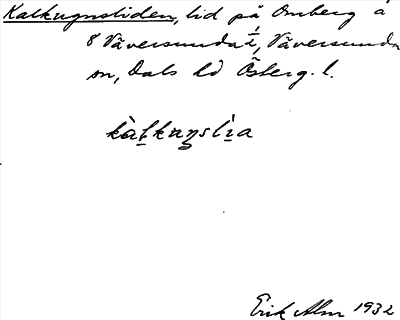 Kalkugnsliden, lid på Omberg å
8 Väversunda 1/2, Väversunda
sn, Dals hd Österg. l.
kàḷkuŋslìa
Erik Alm 1932